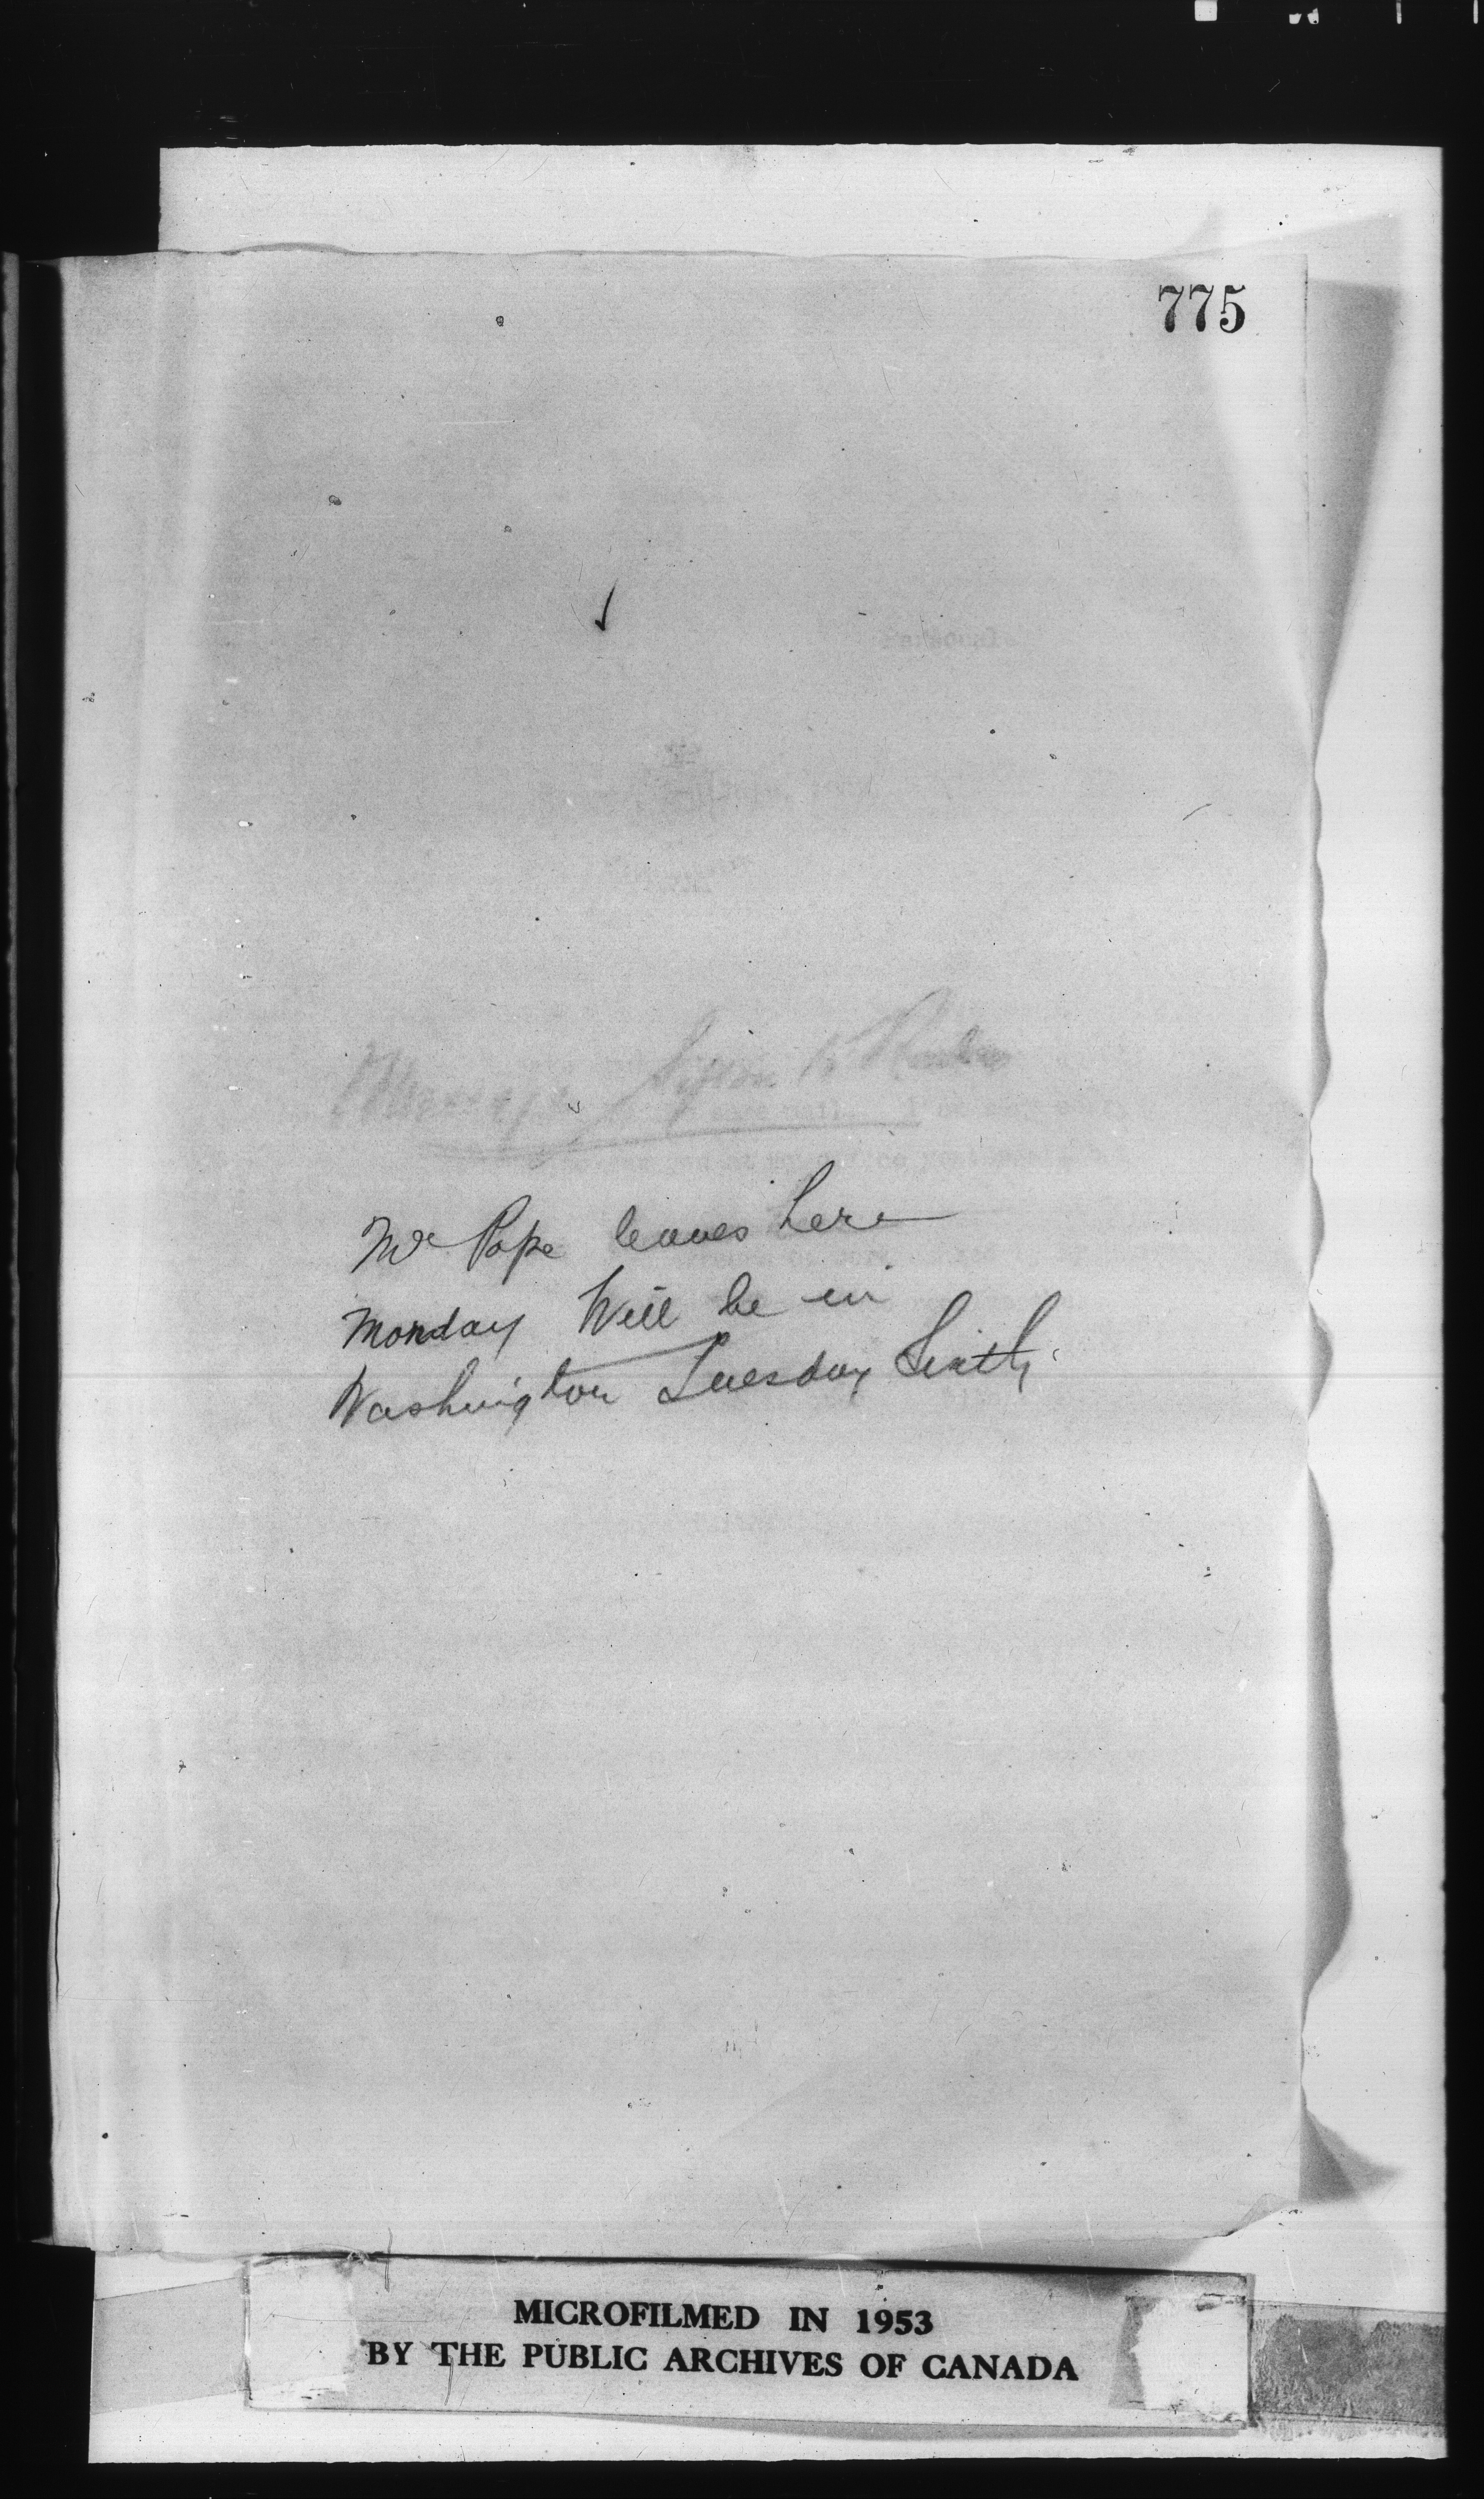 775
Mr Pope leaves here
Monday Will be in
Washington Tuesday Sixth
MICROFILMED IN 1953
BY THE PUBLIC ARCHIVES OF CANADA